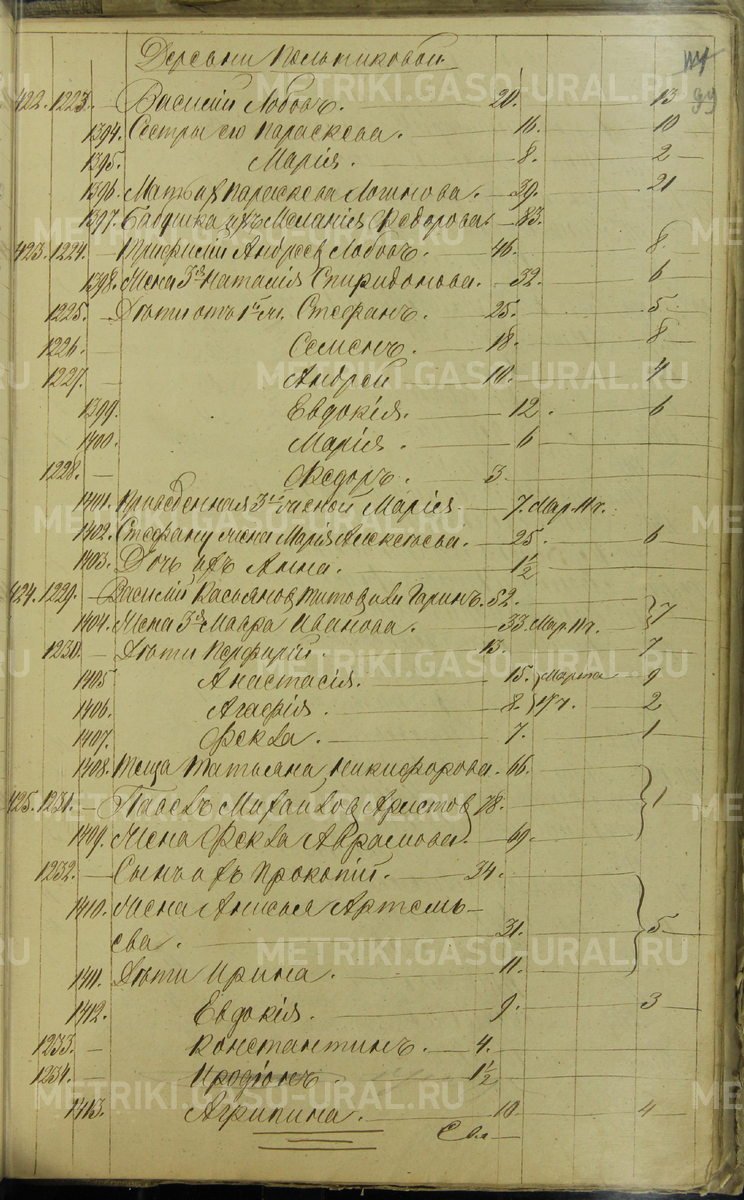 Деревни Пельтиковой.
99
422. 1223. — Василій Лобовъ. — 20. — 13
1394. Сестры его Параскева. — 16. — 10
1395. Марія. — 8. — 2
1396. Мать ихъ Параскева Логинова. — 39. — 21
1397. Бабушка ихъ Меланія Федорова. — 83.
423. 1224. — Андреевъ Лобовъ. — 46. — 8.
1398. Жена 3я Наталія Спиридонова. — 32. — 6
1225. — Дѣти отъ 1й ж. Стефанъ. — 25. — 5
1226. — Семенъ. — 18. — 8
1227. — Андрей — 10. — 4
1399. Евдокія. — 12. — 6
1400. Марія. — 6
1228. — Федоръ. — 3.
1401. Приведенная 3ю женой Марія — 7. Мар. 17 г.
1402. Стефану жена Марія Алексѣева. — 25. — 6
1403. Дочь ихъ Анна. — 1½
424. 1229. — Василій Касьяновъ Гаринъ. 52.
1404. Жена 3я Мавра Иванова. — 33. Мар. 17 г. } 7
1230. — Дѣти Порфирій. — 13. — 7
1405 Анастасія. — 15. } Марта 9
1406. Агафія. — 8. } 17 г. 2
1407. Фекла. — 7. — 1
1408. Теща Татьяна Никифорова. 66.
425. 1231. — Павелъ Михайловъ Аристов 78.
1409. Жена Фекла Аврамова. — 69. } 1
1232. — Сынъ ихъ Прокопій. — 34.
1410. Жена Анисья Артемь-
ева. — 31. } 5
1411. Дѣти Ирина. — 11.
1412. Евдокія. — 9. — 3
1233. — Константинъ. — 4.
1234. — Иродіонъ. — 1½
1413. Агрипина. — 10 — 4
METRIKI.GASO-URAL.RU